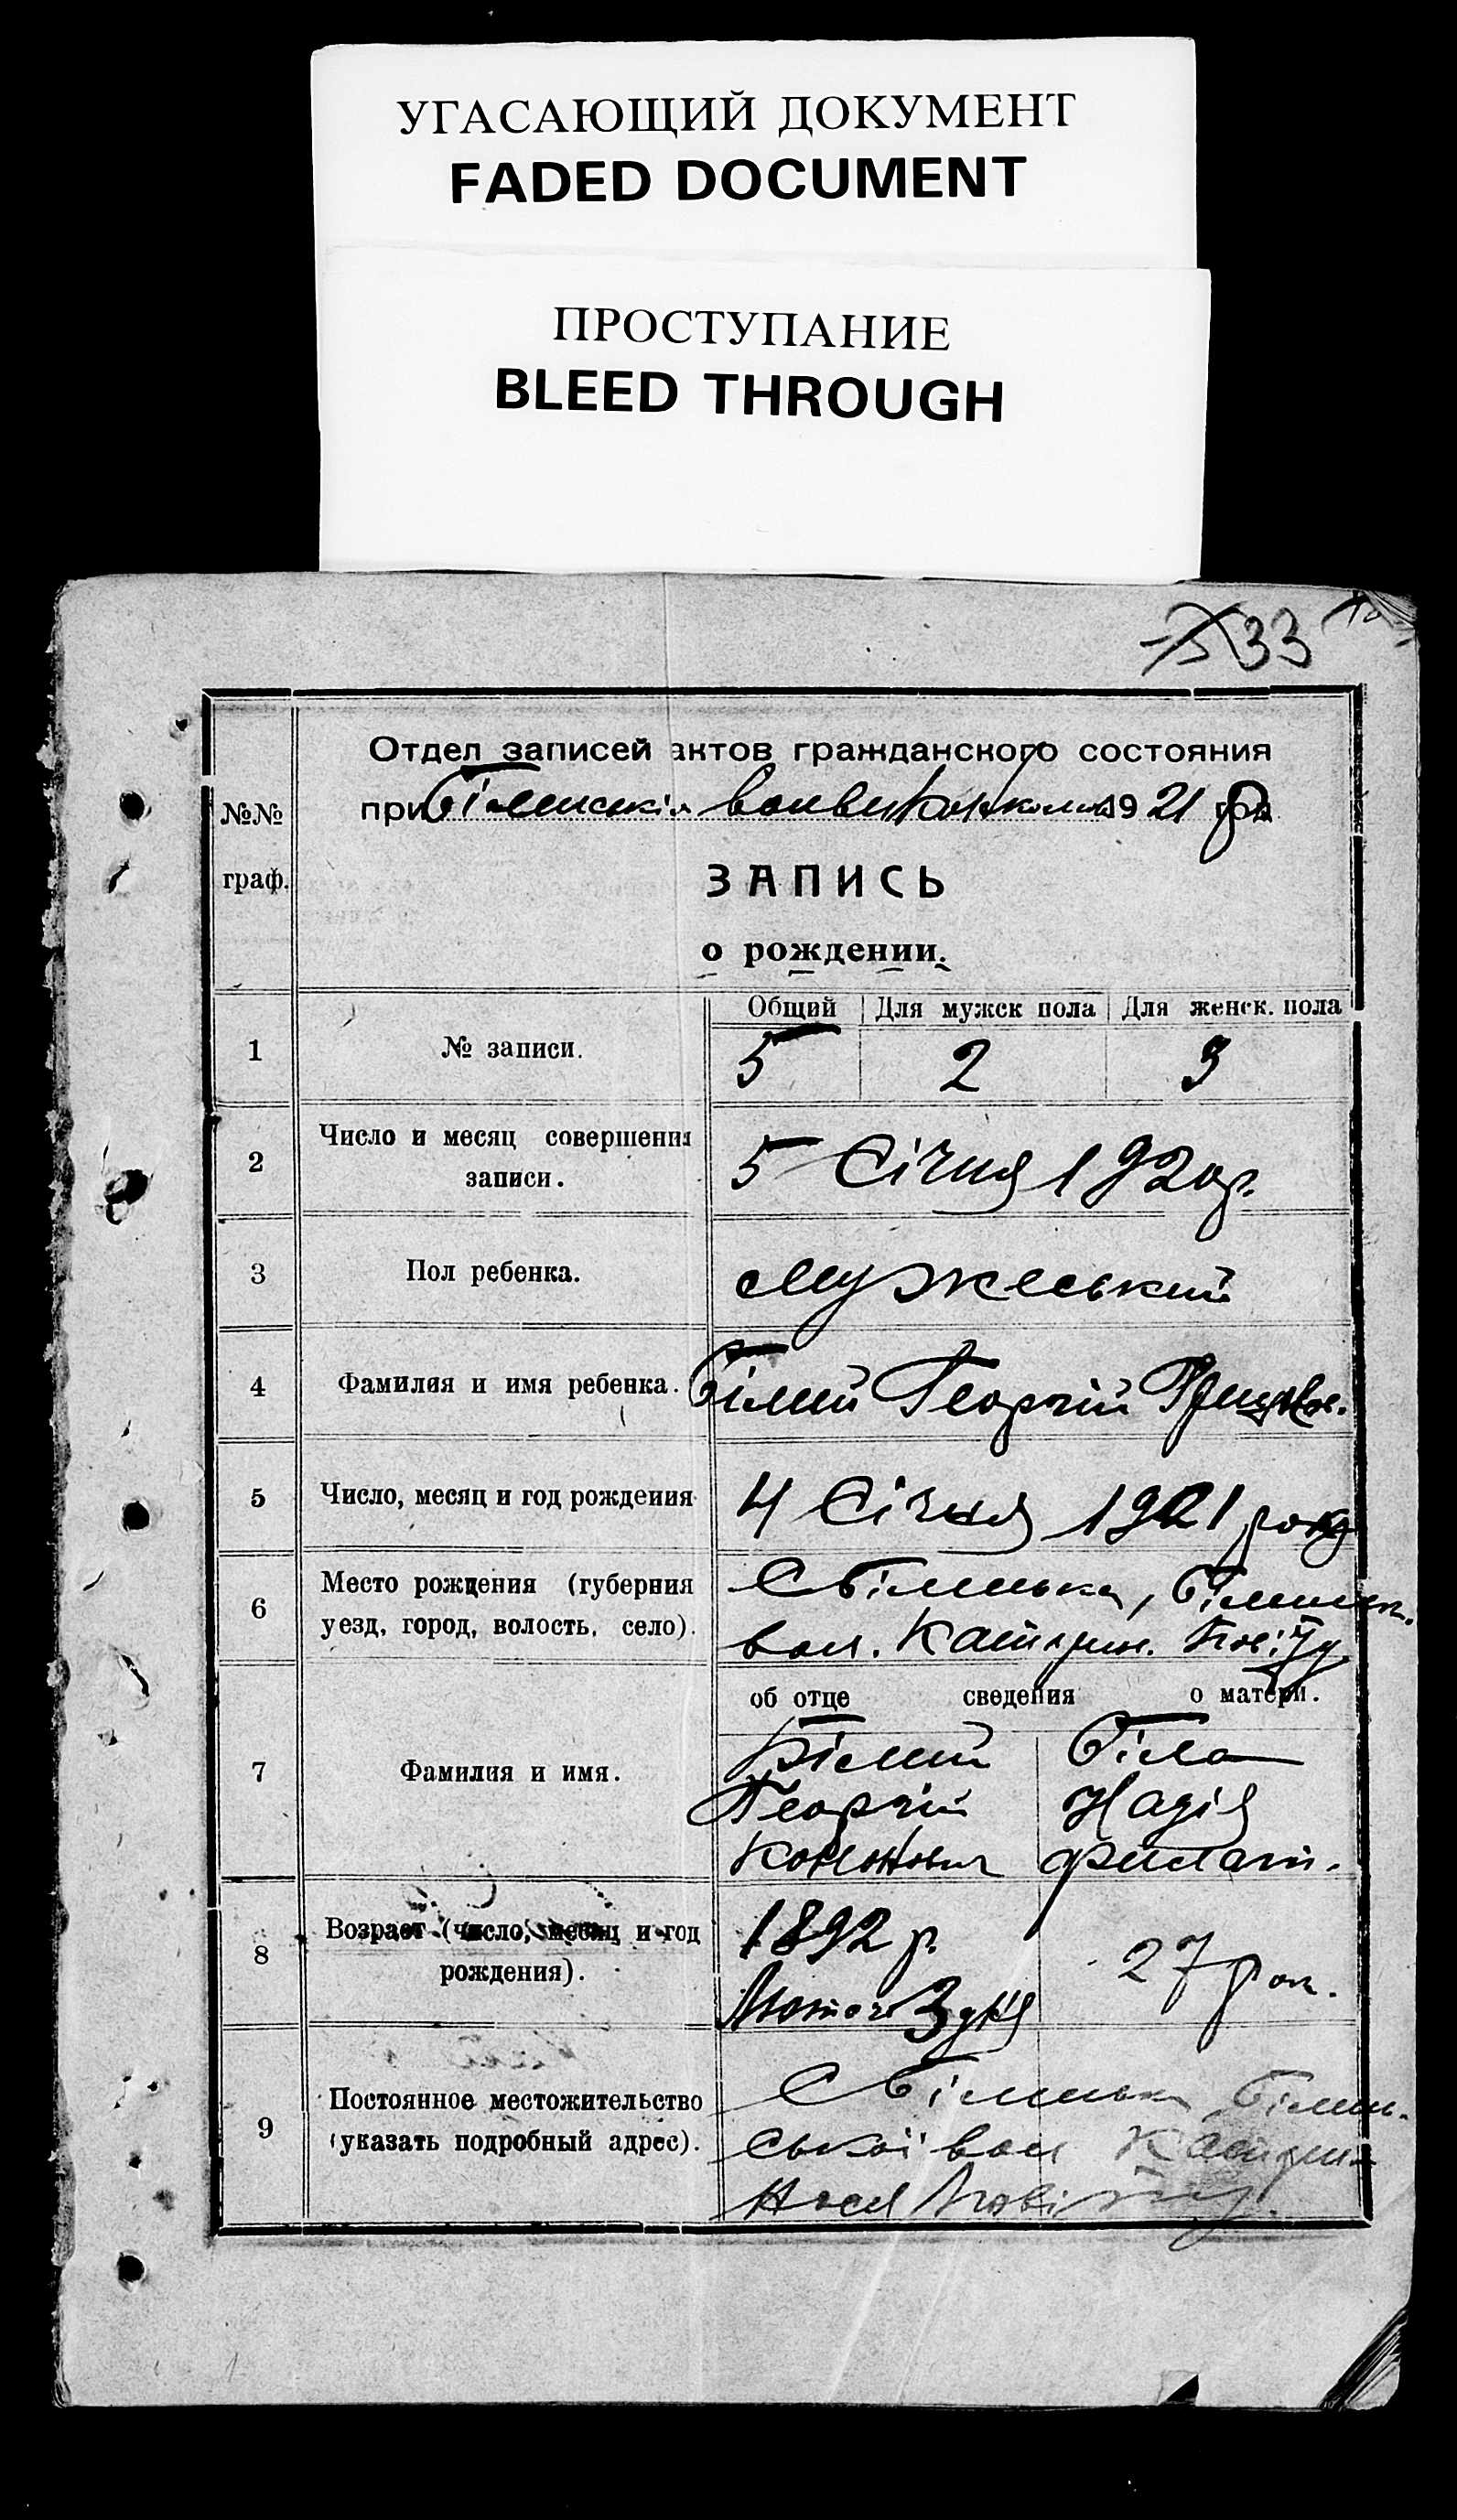 УГАСАЮЩИЙ ДОКУМЕНТ
FADED DOCUMENT
ПРОСТУПАНИЕ
BLEED THROUGH
33
Отдел записей актов гражданского состояния
№№
при 1921
граф.
ЗАПИСЬ
о рождении.
Общий Для мужск пола Для женск. пола
1 № записи. 5 2 3
2 Число и месяц совершения
записи.
5 Січня 1920р.
3 Пол ребенка. Мужеський
4 Фамилия и имя ребенка. Білий Георгій
5 Число, месяц и год рождения 4 Січня 1921 року
6 Место рождения (губерния
уезд, город, волость, село).
С Білинька,
вол. Повіту
об отце сведения о матери.
7 Фамилия и имя.
Білий Біла
Георгій Надія
Кононович Филат.
8 Возраст (число, месяц и год
рождения).
1892 р. 27 рок.
Лютого 3 дня
9 Постоянное местожительство
(указать подробный адрес).
С Білинька Білин-
ської вол
Повіту